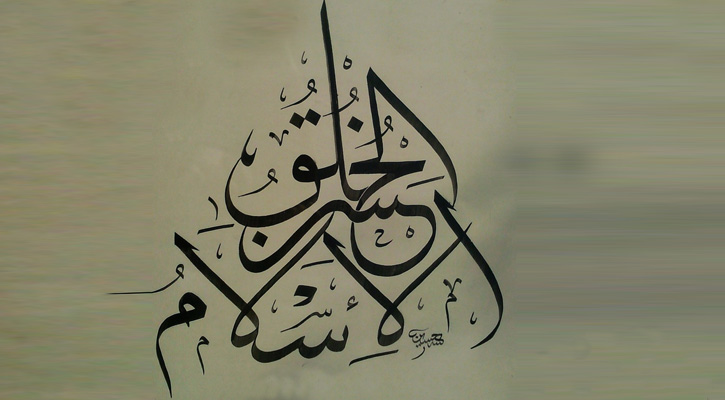 الإسلامُ
حسن
الخُلُقُ